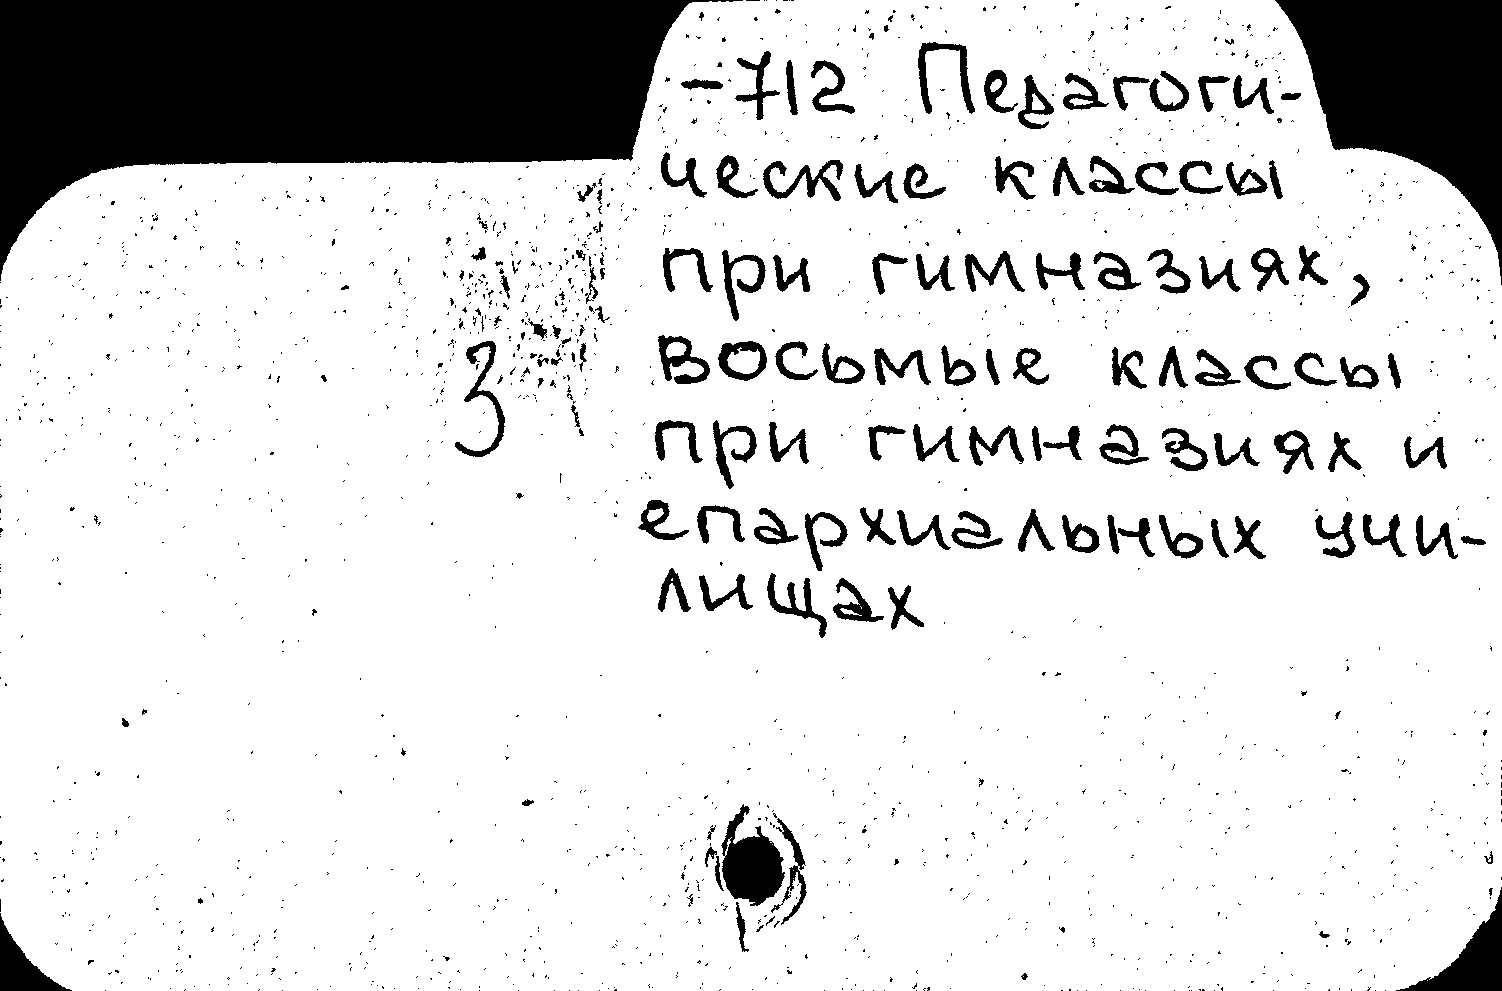 -712 Педагоги-
ческие классы
при гимназиях,
восьмые классы
3
при гимназиях и
епархиальных учи-
лищах